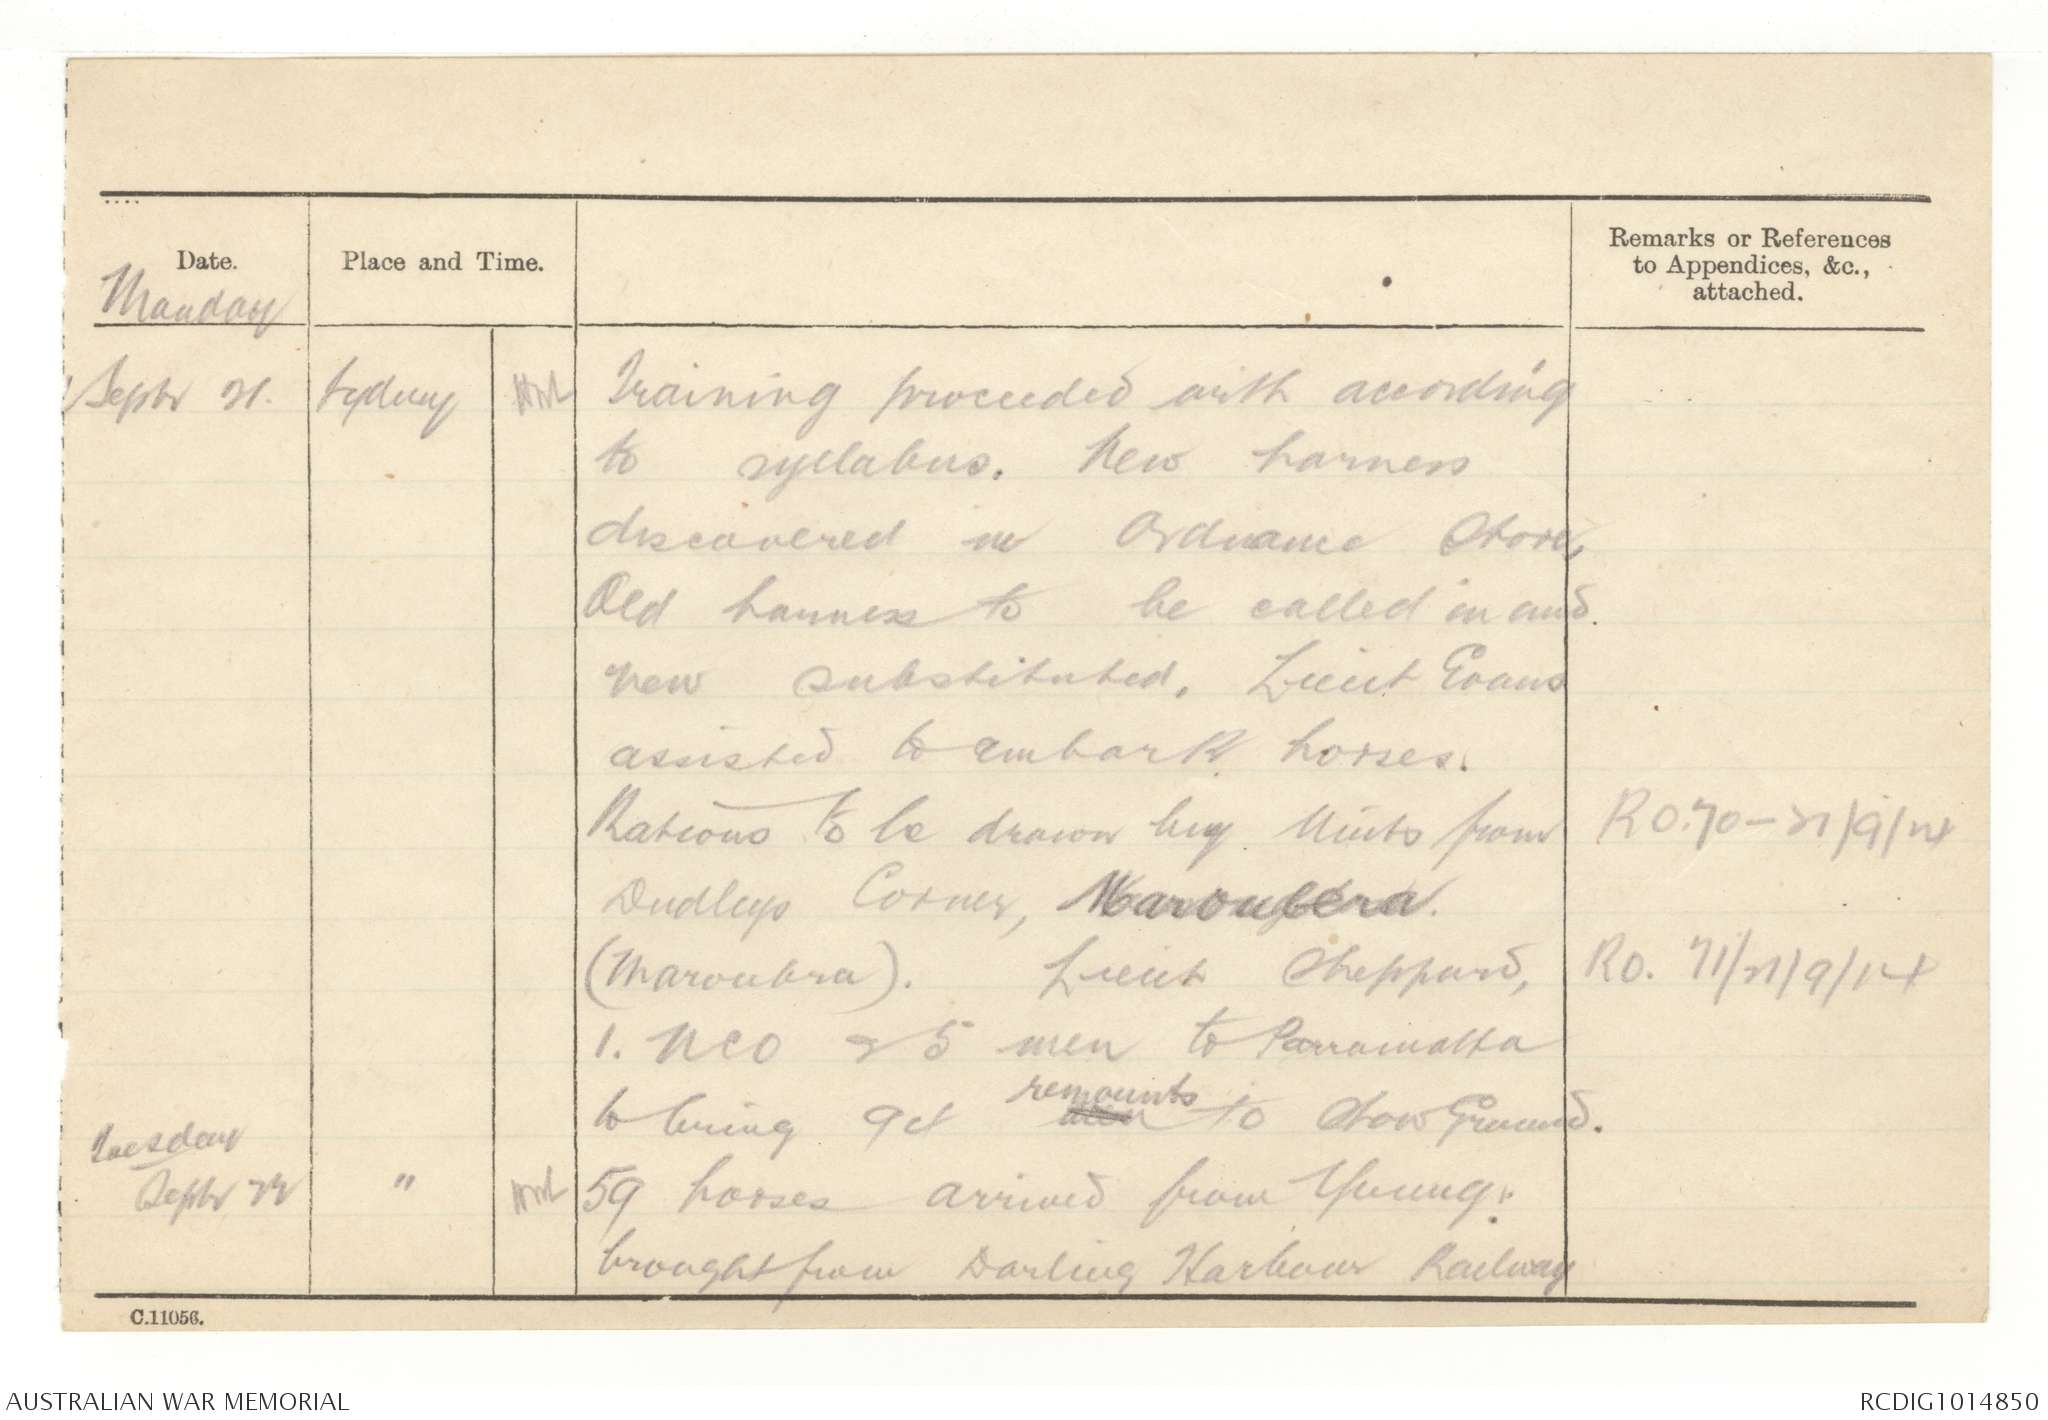 Date.
Place and Time.
Remarks or References
to Appendices, &c.,
attached.
Monday
Septr 21.
Sydney
Training proceeded with according
to syllabus. New harness
discovered in Ordnance Store,
Old harness to be called in and
new substituted. Lieut Evans
assisted to embark horses.
Rations to be drawn by Units from
RO.70-21/9/14
Dudleys Corner, Maroubera.
(Maroubra). Lieut Sheppard,
RO. 71/21/9/14
1. NCO & 5 men to Parramatta
to bring 9ct remounts to Show Ground.
Tuesday
Septr 22
"
59 horses arrived from Young:
brought from Darling Harbour Railway
C.11056.
AUSTRALIAN WAR MEMORIAL
RCDIG1014850